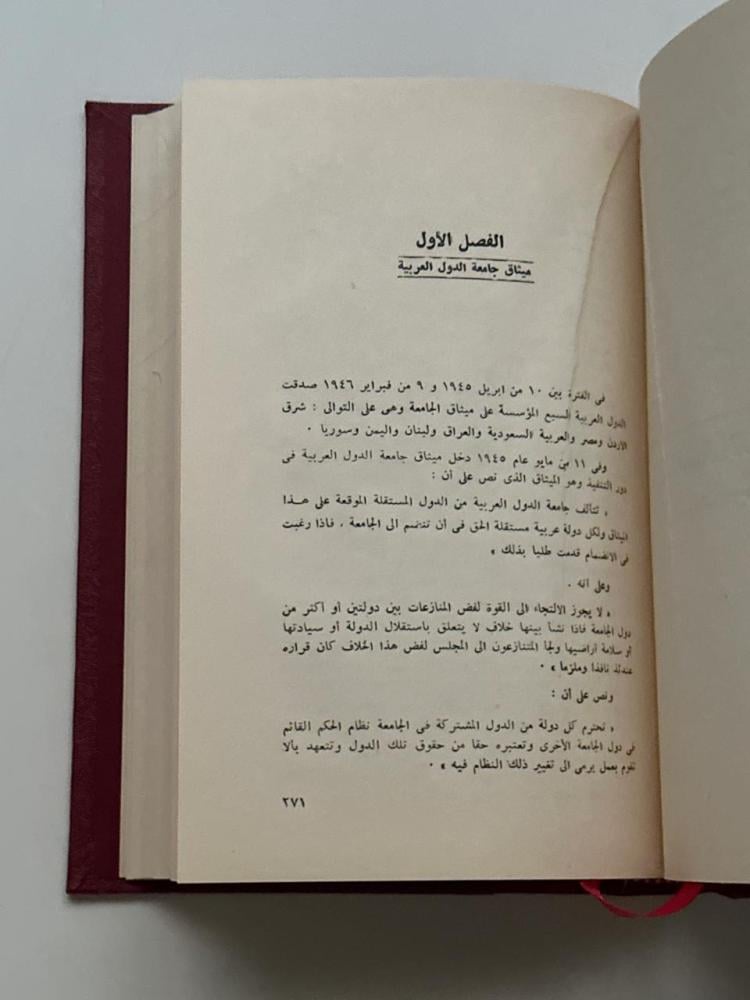 الفصل الأول
ميثاق جامعة الدول العربية
فى الفترة بين ١٠ من ابريل ١٩٤٥ و ٩ من فبراير ١٩٤٦ صدقت
الدول العربية السبع المؤسسة على ميثاق الجامعة وهى على التوالى : شرق
الاردن ومصر والعربية السعودية والعراق ولبنان واليمن وسوريا .
وفى ١١ من مايو عام ١٩٤٥ دخل ميثاق جامعة الدول العربية فى
دور التنفيذ وهو الميثاق الذى نص على أن :
« تتألف جامعة الدول العربية من الدول المستقلة الموقعة على هـذا
الميثاق ولكل دولة عربية مستقلة الحق فى أن تنضم الى الجامعة ، فاذا رغبت
فى الانضمام قدمت طلبا بذلك »
وعلى أنه .
« لا يجوز الالتجاء الى القوة لفض المنازعات بين دولتين أو أكثر من
دول الجامعة فاذا نشأ بينها خلاف لا يتعلق باستقلال الدولة أو سيادتها
أو سلامة أراضيها ولجأ المتنازعون الى المجلس لفض هذا الخلاف كان قراره
عندئذ نافذا وملزما » .
ونص على أن :
« تحترم كل دولة من الدول المشتركة فى الجامعة نظام الحكم القائم
فى دول الجامعة الأخرى وتعتبره حقا من حقوق تلك الدول وتتعهد بألا
تقوم بعمل يرمى الى تغيير ذلك النظام فيه » .
٢٧١